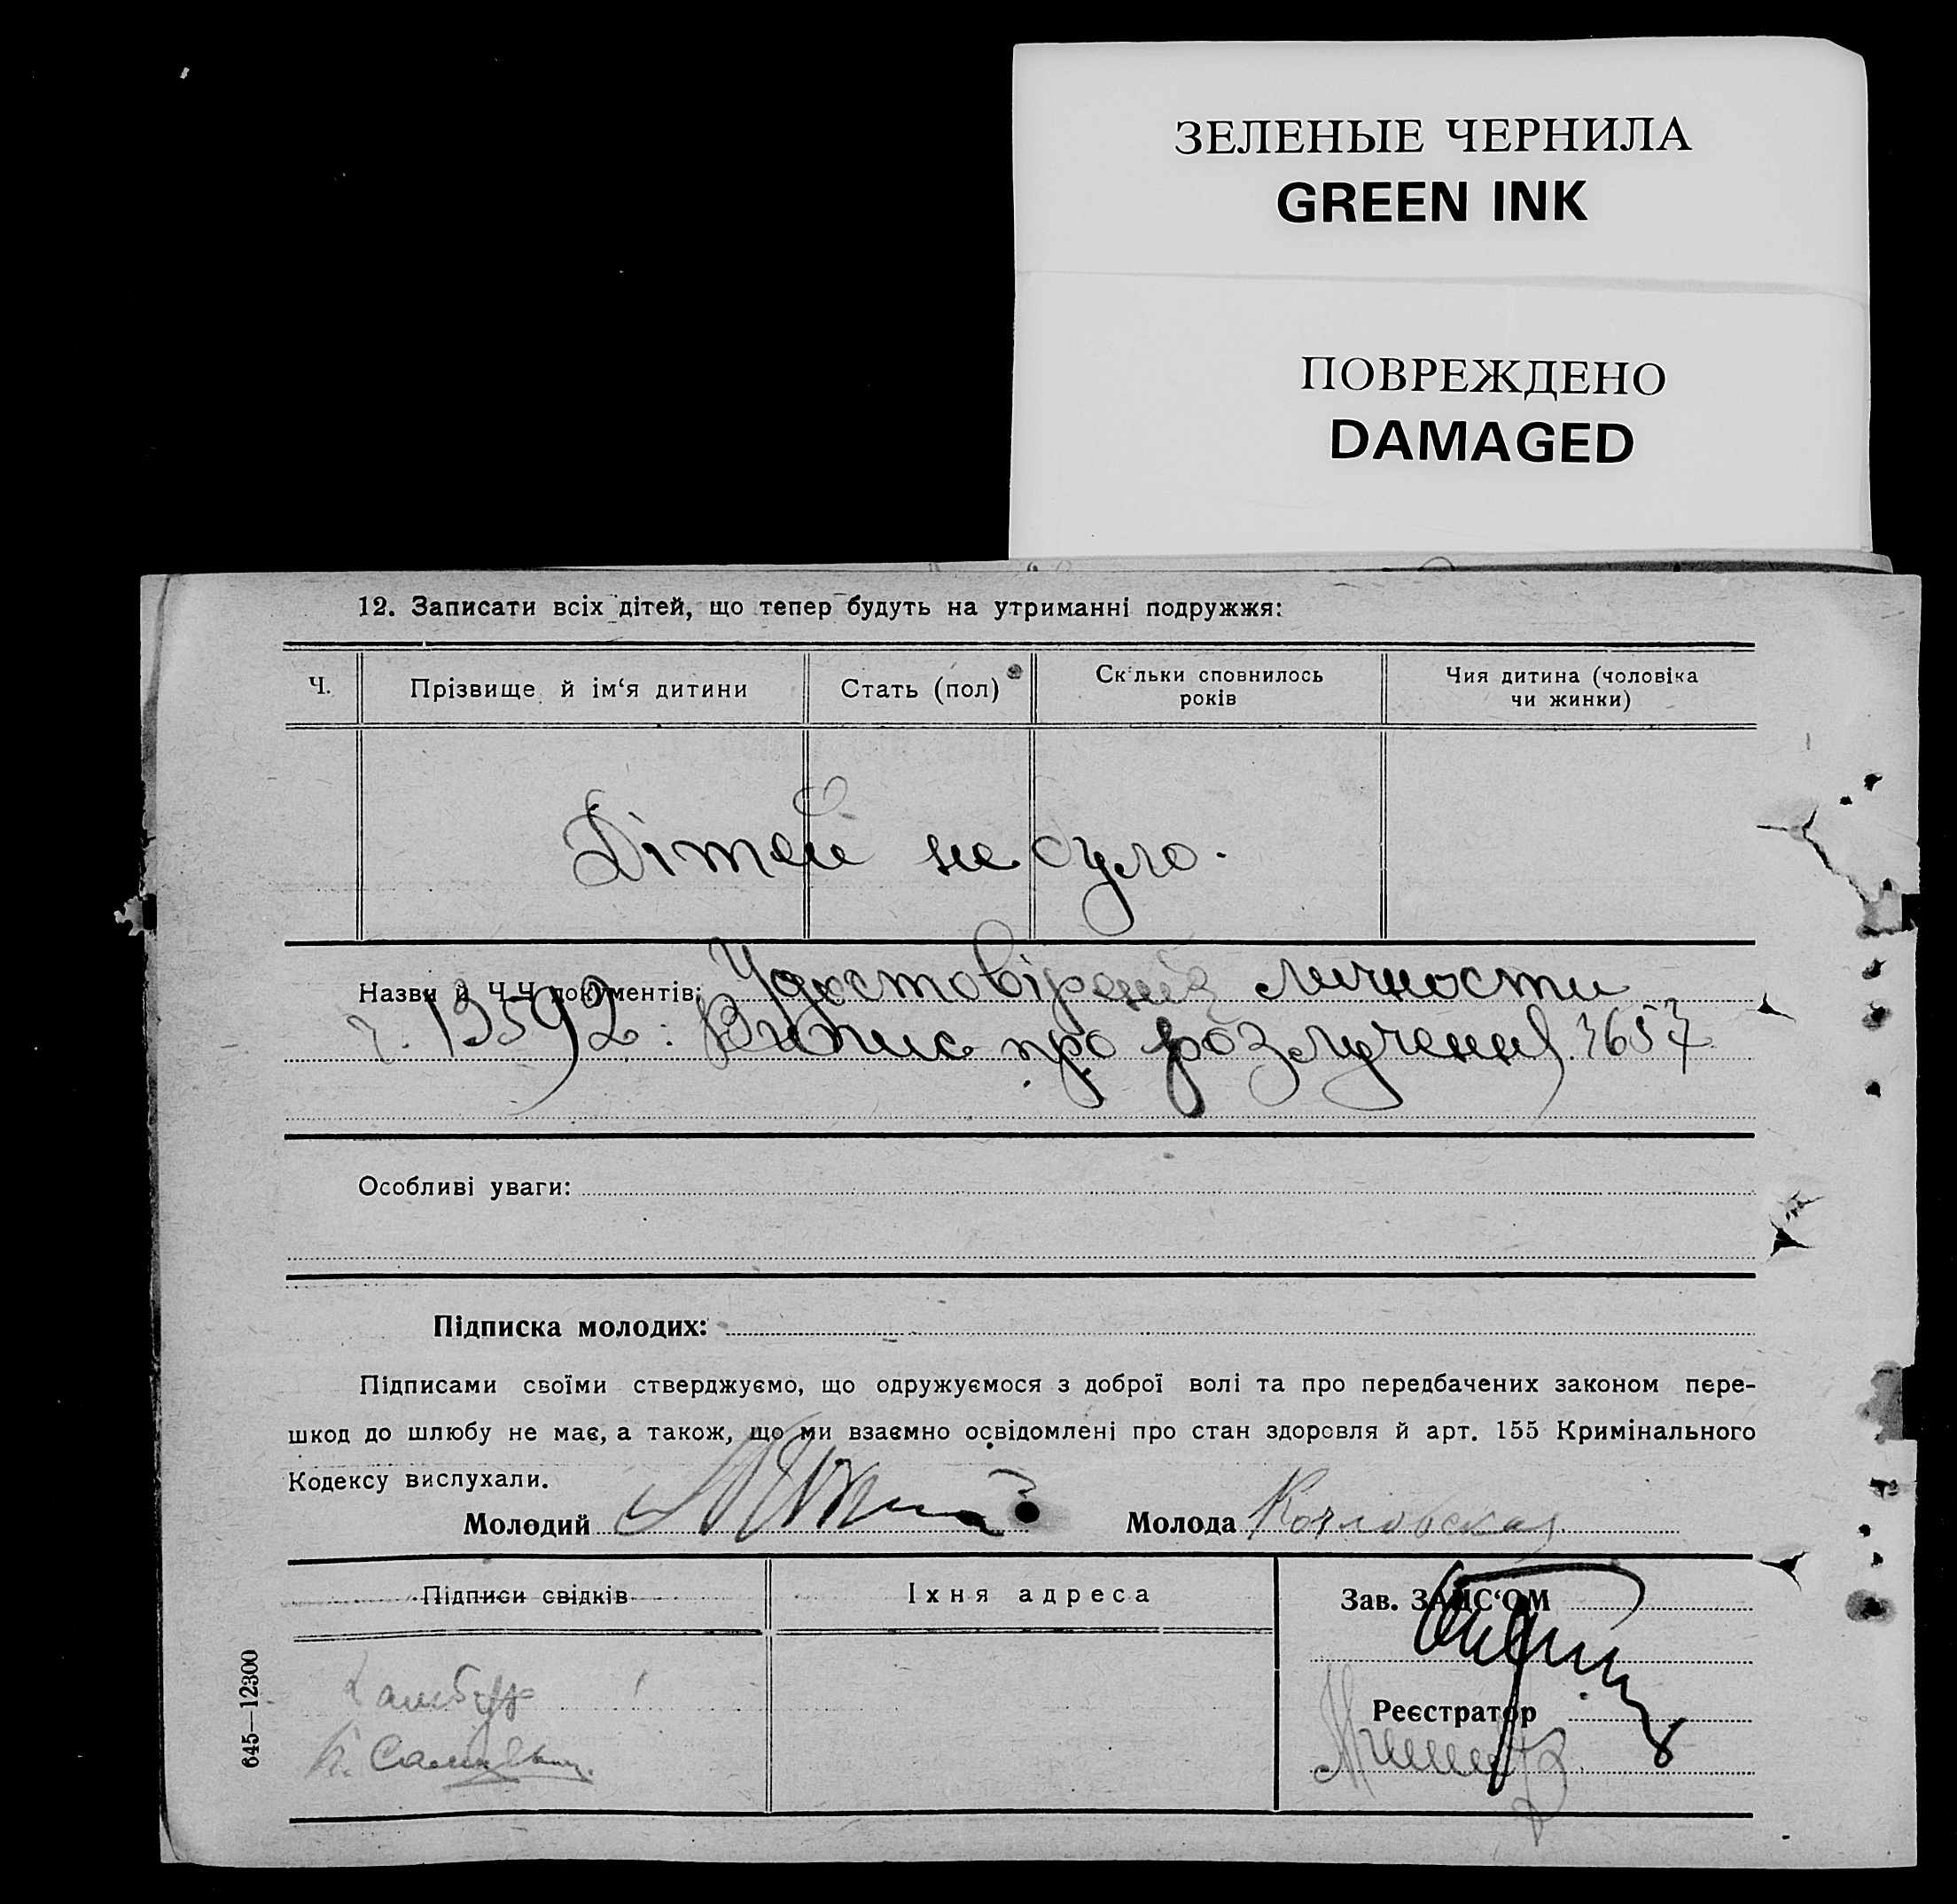 ЗЕЛЕНЫЕ ЧЕРНИЛА
GREEN INK
ПОВРЕЖДЕНО
DAMAGED
12. Записати всіх дітей, що тепер будуть на утриманні подружжя:
Ч.
Прізвище й ім‘я дитини
Стать (пол)
Скільки сповнилось
років
Чия дитина (чоловіка
чи жинки)
Дітей не було.
Назви й Ч.Ч документів: Удостовірення личности
ч. 13592: Випис про розлучення. 3657
Особливі уваги:
Підписка молодих:
Підписами своїми стверджуємо, що одружуємося з доброї волі та про передбачених законом пере-
шкод до шлюбу не має, а також, що ми взаємно освідомлені про стан здоровля й арт. 155 Кримінального
Кодексу вислухали.
Молодий
Молода Козловская
Підписи свідків
Іхня адреса
Зав. ЗАПС‘ОМ
Реєстратор
645—12300